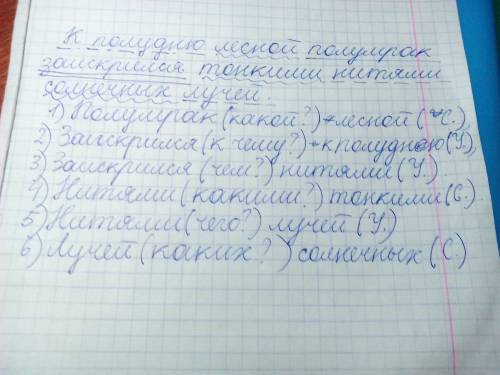 К полудню лесной полумрак
заискрился тонкими нитями
солнечных лучей.
1) Полумрак (какой?) - лесной (С.),
2) Заискрился (к чему?) - к полудню (У.),
3) Заискрился (чем?) нитями (У.)
4) Нитями (какими?) тонкими (С.)
5) Нитями (чего?) лучей (У.)
6) Лучей (каких?) солнечных (С.)